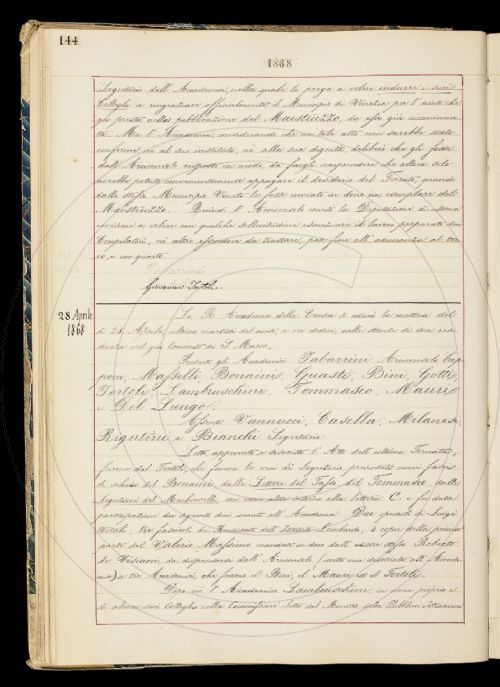 144
1868
Segretario dell' Accademia, nella quale la prega a volere indurre i suoi
Colleghi a ringraziare officialmente il Municipio di Venezia per l'aiuto che
gli presta nella pubblicazione del Maestruzzo, da esso già incominciata
ta. Ma l' Accademia, considerando che un tale atto non sarebbe stato
conforme nè al suo instituto, nè alla sua dignità, deliberò che gli fosse
dall' Arciconsolo risposto in modo, da fargli comprendere che allora solo
avrebbe potuto convenientemente appagare il desiderio del quando
dallo stesso Municipio Veneto le fosse inviato in dono un esemplare del
Maestruzzo. Quindi l' Arciconsolo invitò la Deputazione di
revisione a volere con qualche sollecitudine esaminare il lavoro preparato dai
Compilatori, nè altro essendovi da trattare, pose fine all' adunanza al tocco
co e un quarto.
Tabarrini
Giovanni Tortoli
28 Aprile
1868
La R. Accademia della Crusca si adunò la mattina del
dì 28 Aprile, ultimo martedì del mese, a ore dodici, nelle stanze di sua resi-
denza nel già Convento di S. Marco.
Presenti gli Accademici Tabarrini Arciconsolo,
poni, Maffei Bonaini, Guasti, Bini, Gotti,
Tortoli, Lambruschini, Tommaseo, Mauri
e Del Lungo.
Assenti Vannucci, Casella, Milanesi
Rigutini e Bianchi Segretario.
Letto, approvato e sottoscritto l' Atto dell' ultima Tornata,
furono dal Tortoli, che faceva le veci di Segretario, presentate
di schede del Bonaini, dalle Lettere del Tasso, del Tommaseo, dalle
Legazioni del Machiavelli, intorno alla lettera C: e fu data
partecipazione dei seguenti doni inviati all' Accademia. Due di Luigi
tre fascicoli dei Rendiconti dell' Istituto Lombardo, 4 copie della prima
parte del Valerio Massimo mandate in dono dall' stesso Roberto
de Visiani, da dispensarsi dall' Arciconsolo all' Accade-
mia) a tre Accademici, che furono il Bini, il Mauri, e il Tortoli.
Dopo ciò l' Accademico Lambruschini, in nome proprio e
di alcuni suoi Colleghi nella Commissione eletta dal Ministro della Pubblica Istruzione